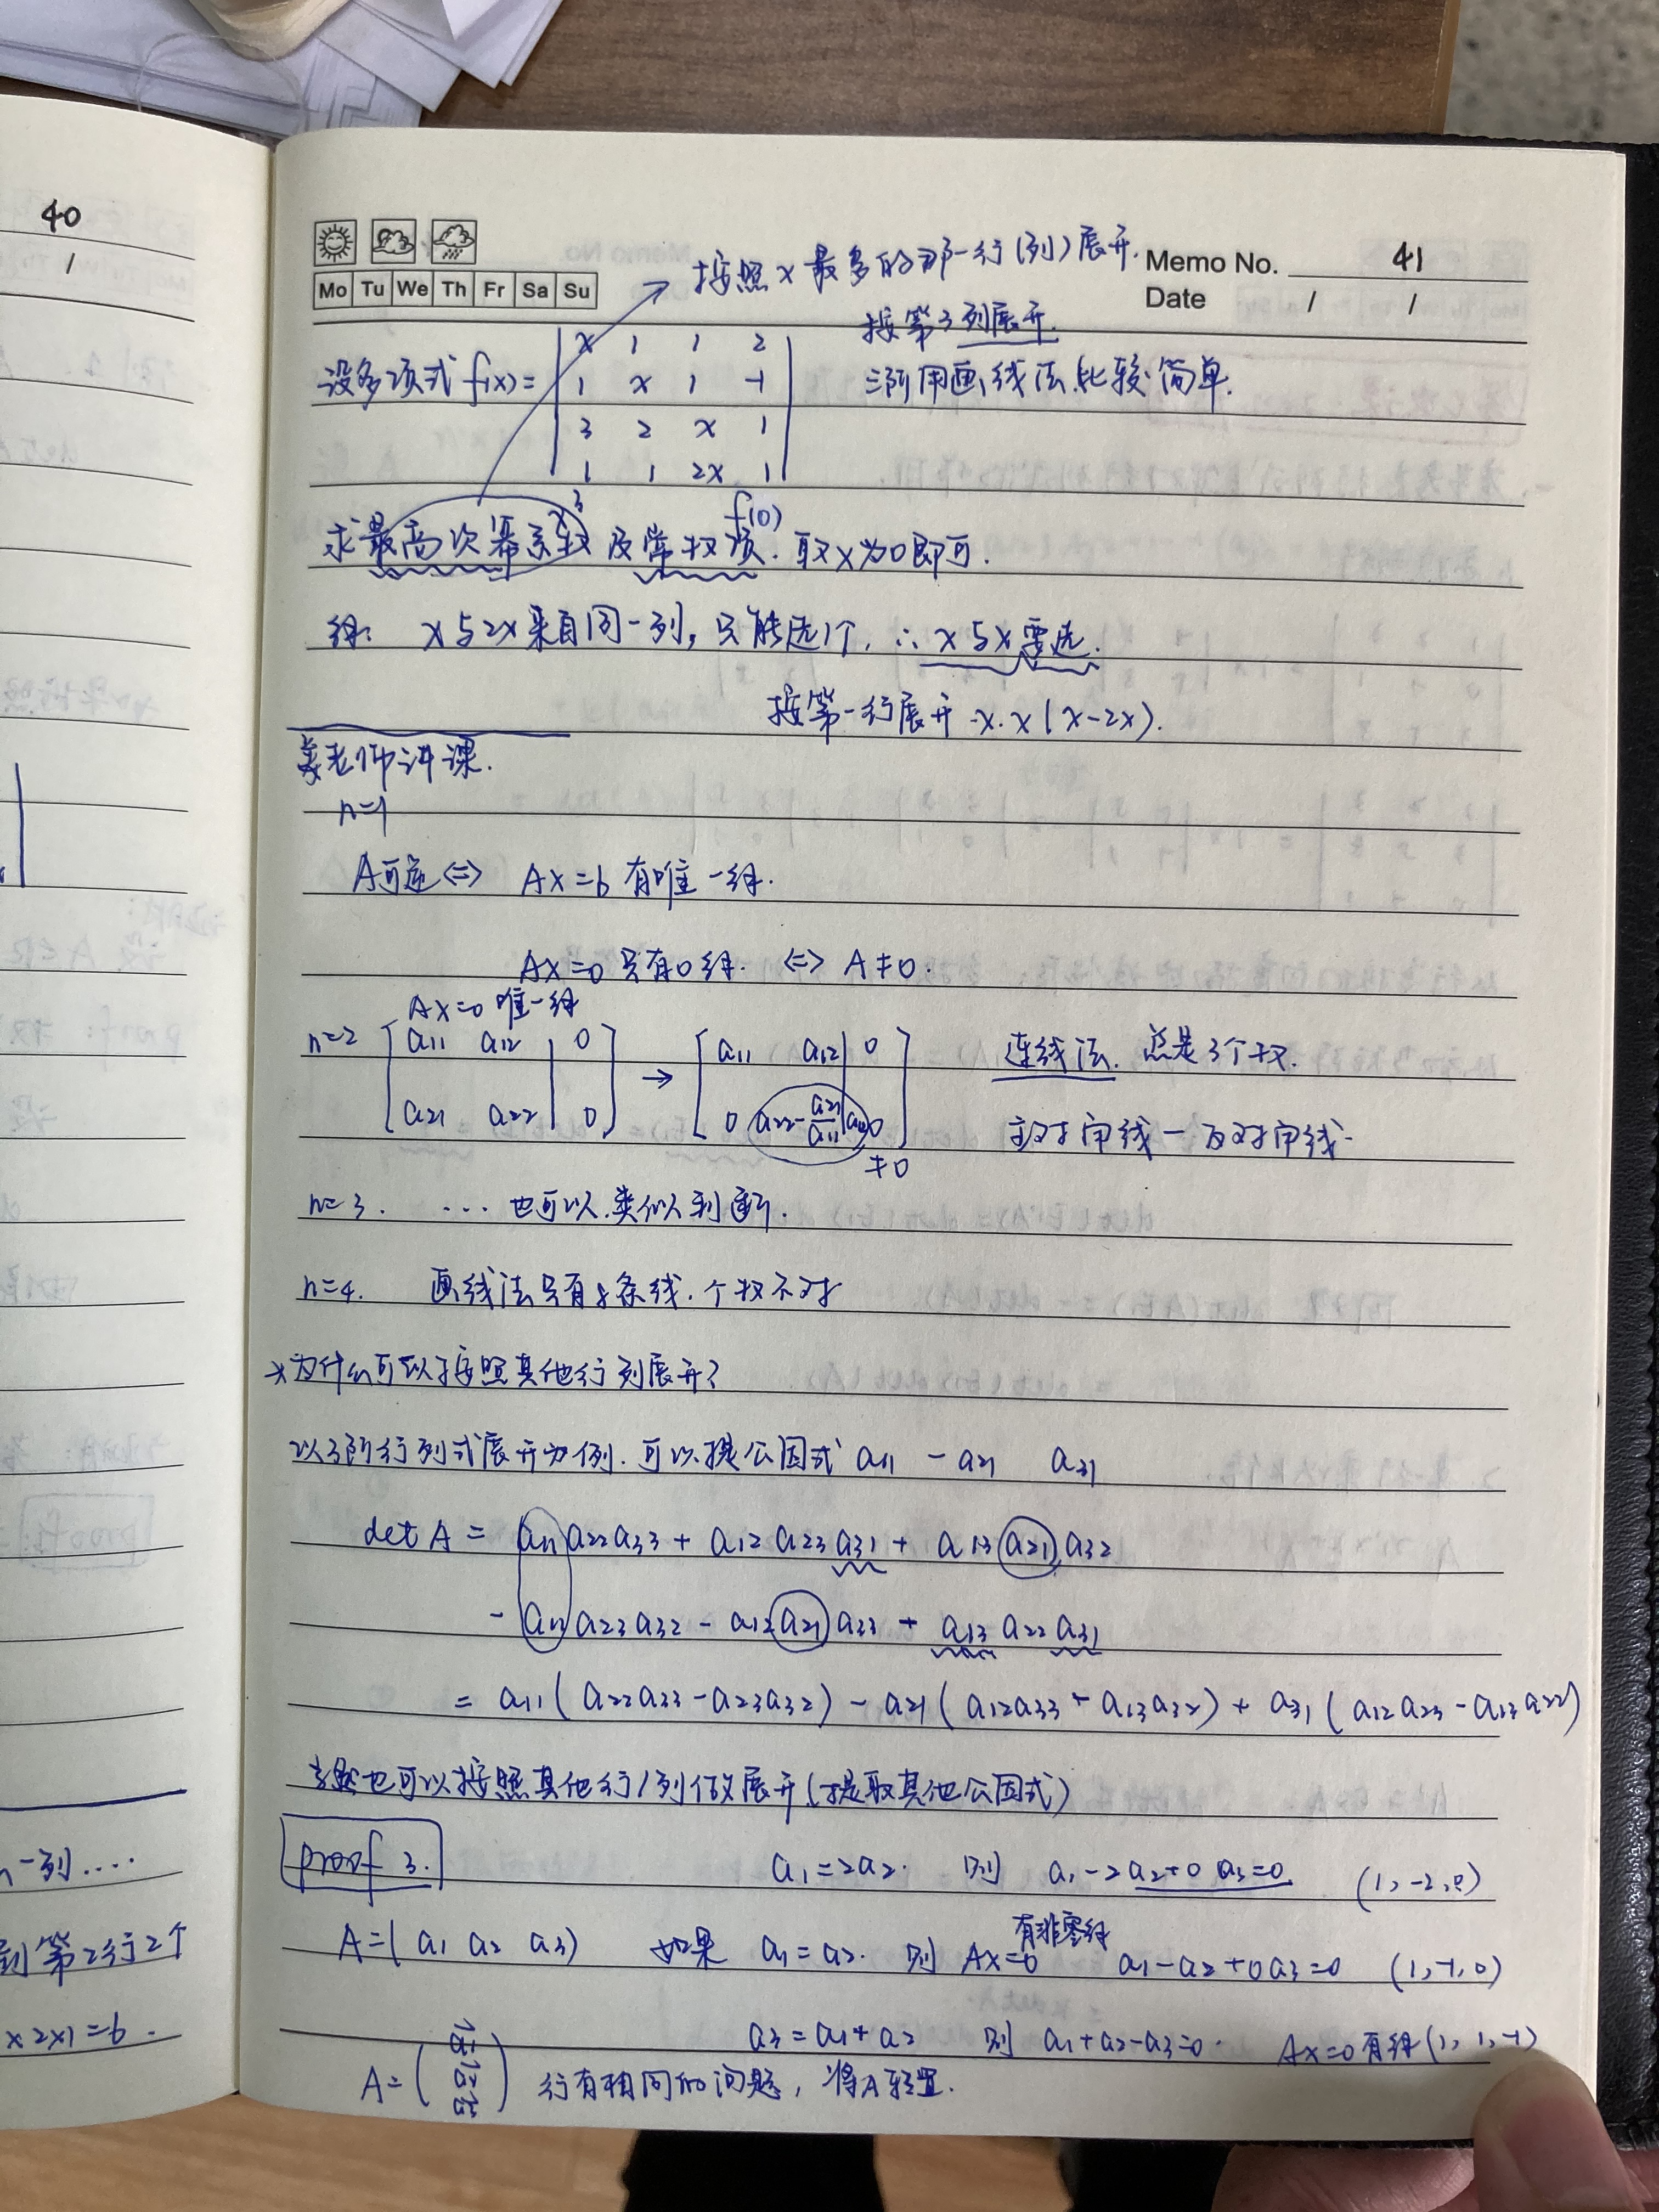 40
/
一列....
到第2行2个
x2x1=6.
Mo Tu We Th Fr Sa Su
Memo No. 41
Date / /
按照x最多的那一行(列)展开.
按第3列展开.
三阶用画线法比较简单.
设多项式 f(x)=
x 1 1 2
1 x 1 -1
3 2 x 1
1 1 2x 1
x³ f(0)
求最高次幂系数及常数项. 取x为0即可.
解: x与2x来自同一列, 只能选1个, ∴ x与x要选.
按第一行展开 x·x(x-2x).
老师讲课.
n=1
A可逆 ⇔ Ax=b 有唯一解.
Ax=0 只有0解. ⇔ A≠0.
Ax=0 唯一解
n=2 [a11 a12 | 0 → [a11 a12 | 0
a21 a22 | 0] 0 a22-a21/a11 a12 0] ≠0
连线法. 总是3个数.
主对角线-反对角线.
n=3. ... 也可以类似判断.
n=4. 画线法只有8条线. 个数不对
*为什么可以按照其他行列展开?
以3阶行列式展开为例. 可以提公因式 a11 -a21 a31
det A = a11a22a33 + a12a23a31 + a13a21a32
- a11a23a32 - a12a21a33 + a13a22a31
= a11(a22a33-a23a32) - a21(a12a33+a13a32) + a31(a12a23-a13a22)
当然也可以按照其他行/列做展开(提取其他公因式)
proof 3. a1=2a2. 则 a1-2a2+0a3=0 (1,-2,0)
有非零解
A=(a1 a2 a3) 如果 a1=a2. 则 Ax=0 a1-a2+0a3=0 (1,-1,0)
a3=a1+a2 则 a1+a2-a3=0. Ax=0有解(1,1,-1)
A=( ) 行有相同的问题, 将A转置.